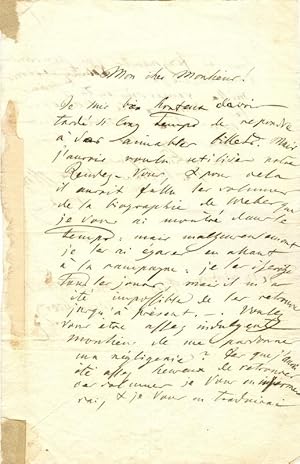 Mon cher Monsieur!
Je suis bien honteux d'avoir
tardé si long temps de répondre
à Vos aimables billets. Mais
j'aurais voulu utiliser notre
Rendez-Vous, & pour cela
il aurait fallu les volumes
de la biographie de Weber que
je Vous ai montré dans le
temps; mais malheureusement
je les ai égarés en allant
à la campagne; je les cherche
tous les jours, mais il m'a
été impossible de les retrouver
jusqu'à présent. — Voulez
Vous être assez indulgent
Monsieur de me pardonner
ma négligence? Dès que j'aurai
été assez heureux de retrouver
ces volumes je Vous en informe
rai, & je Vous en traduirai